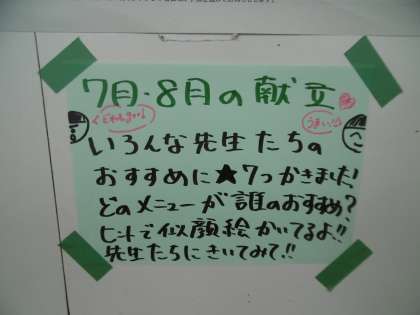 7月・8月の献立
うまい!!
いろんな先生たちの
おすすめに★7つかきました!
どのメニューが誰のおすすめ?
ヒントで似顔絵かいてるよ!!
先生たちにきいてみて!!